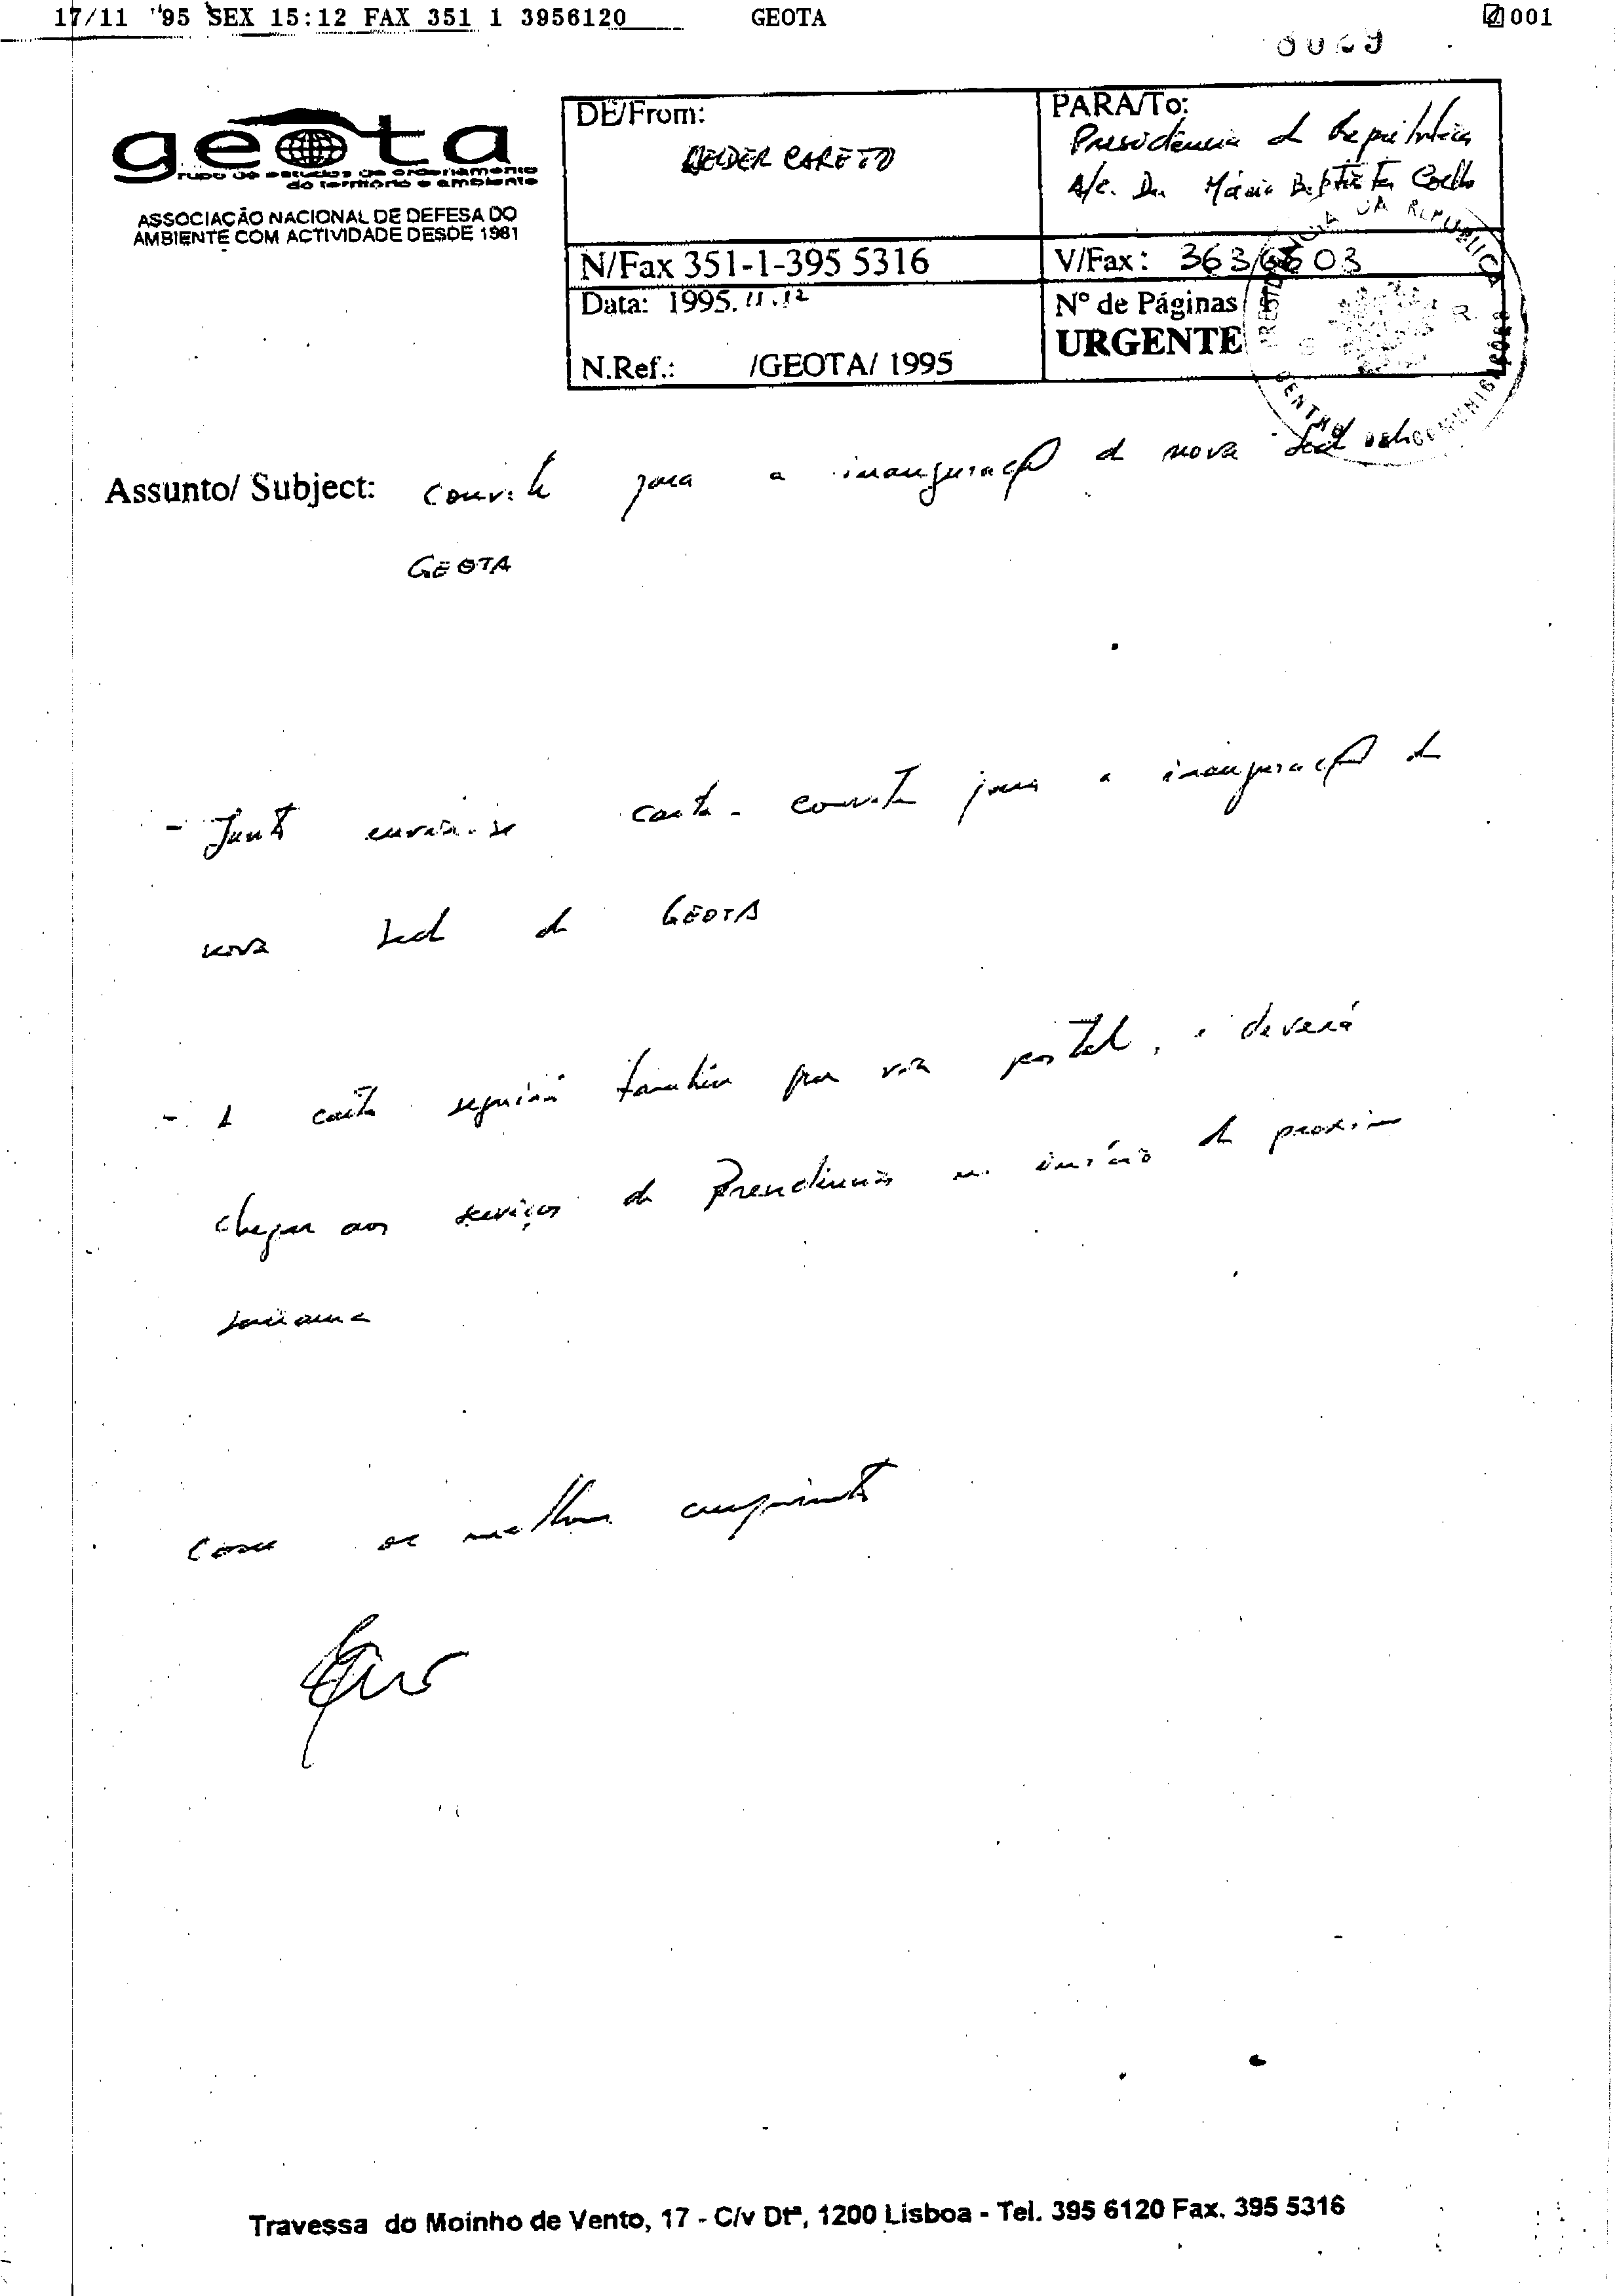 17/11 '95 SEX 15:12 FAX 351 1 3956120 GEOTA 001
geota
grupo de estudos de ordenamento
do território e ambiente
ASSOCIAÇÃO NACIONAL DE DEFESA DO
AMBIENTE COM ACTIVIDADE DESDE 1981
DE/From:
HELDER CARETO
PARA/To:
Presidência da República
A/c. Dr. Mário Baptista Coelho
N/Fax 351-1-395 5316
V/Fax: 3636603
Data: 1995.11.17
Nº de Páginas
URGENTE
N.Ref.: /GEOTA/ 1995
PRESIDÊNCIA DA REPÚBLICA
CENTRO DE COMUNICAÇÕES
Assunto/ Subject: Convite para a inauguração da nova sede do
GEOTA
- Junto envia-se carta-convite para a inauguração da
nova sede do GEOTA
- A carta seguirá também por via postal, e deverá
chegar aos serviços da Presidência no início da próxima
semana
Com os melhores cumprimentos
Travessa do Moinho de Vento, 17 - C/v Dtª, 1200 Lisboa - Tel. 395 6120 Fax. 395 5316